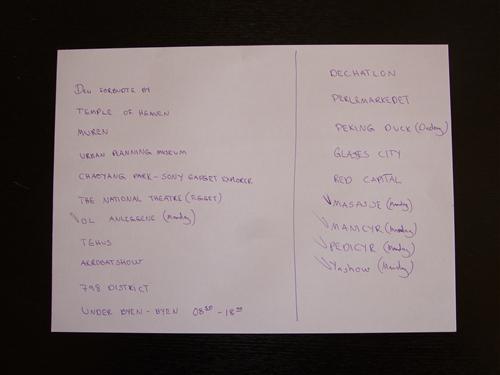 DEN FORBUDTE BY
TEMPLE OF HEAVEN
MUREN
URBAN PLANNING MUSEUM
CHAOYANG PARK - SONY GADGET EXPLORER
THE NATIONAL THEATRE (ÆGGET)
OL ANLÆGGENE (Mandag)
TEHUS
AKROBATSHOW
798 DISTRICT
UNDER BYEN - BYEN 08 30 - 18 00
DECHATLON
PERLEMARKEDET
PEKING DUCK (Onsdag)
GLASSES CITY
RED CAPITAL
MASASJE (Mandag)
MANICYR (Mandag)
PEDICYR (Mandag)
Yashow (Mandag)